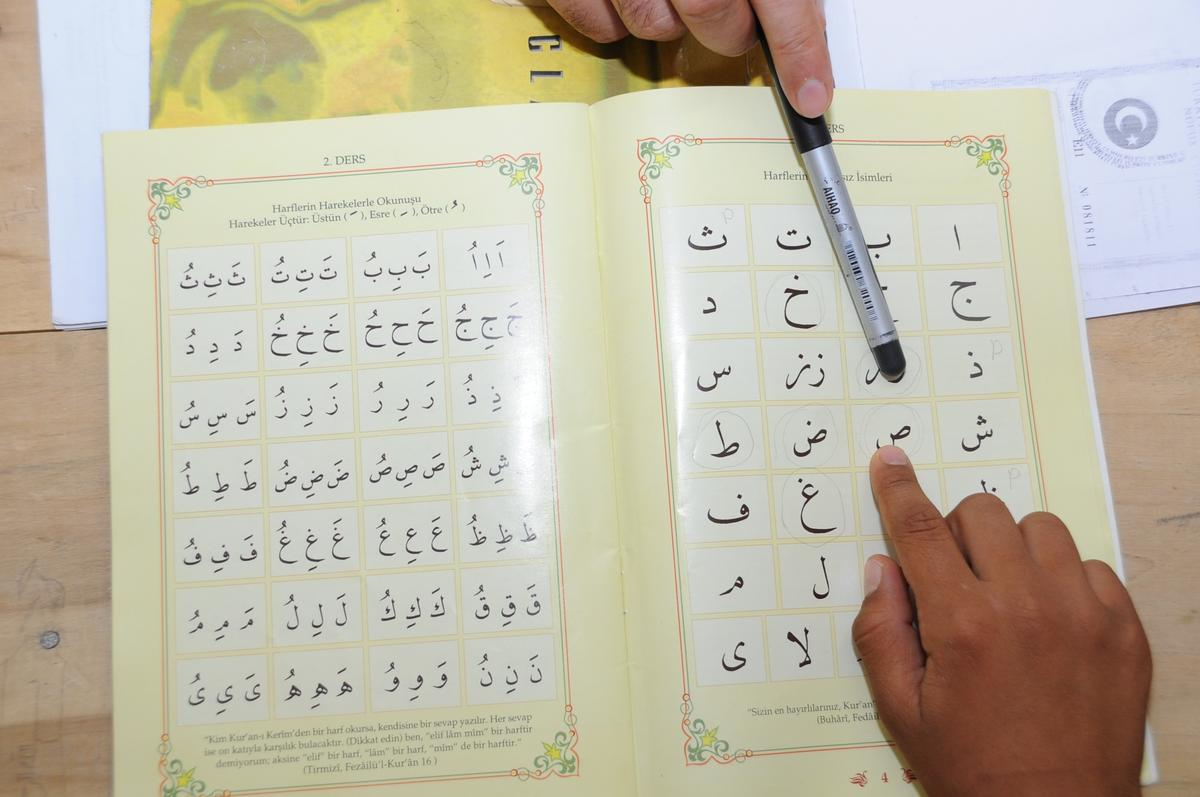 2. DERS
Harflerin Harekelerle Okunuşu
Harekeler Üçtür: Üstün ( َ ), Esre ( ِ ), Ötre ( ُ )
اَ اِ اُ بَ بِ بُ تَ تِ تُ ثَ ثِ ثُ
جَ جِ جُ حَ حِ حُ خَ خِ خُ دَ دِ دُ
ذِ ذُ رَ رِ رُ زَ زِ زُ سَ سِ سُ
شِ شُ صَ صِ صُ ضَ ضِ ضُ طَ طِ طُ
ظَ ظِ ظُ عَ عِ عُ غَ غِ غُ فَ فِ فُ
قَ قِ قُ كَ كِ كُ لَ لِ لُ مَ مِ مُ
نَ نِ نُ وَ وِ وُ هَ هِ هُ ىَ ىِ ىُ
“Kim Kur’an-ı Kerîm’den bir harf okursa, kendisine bir sevap yazılır. Her sevap
ise on katıyla karşılık bulacaktır. (Dikkat edin) ben, “elif lâm mîm” bir harftir
demiyorum; aksine “elif” bir harf, “lâm” bir harf, “mîm” de bir harftir.”
(Tirmizî, Fezâilü’l-Kur’ân 16 )
Harflerin İsimleri
ا ب ت ث
ج خ د
ذ زز س
ش ص ض ط
غ ف
ل م
لا ى
“Sizin en hayırlılarınız, Kur’an
(Buhârî,
4
081811